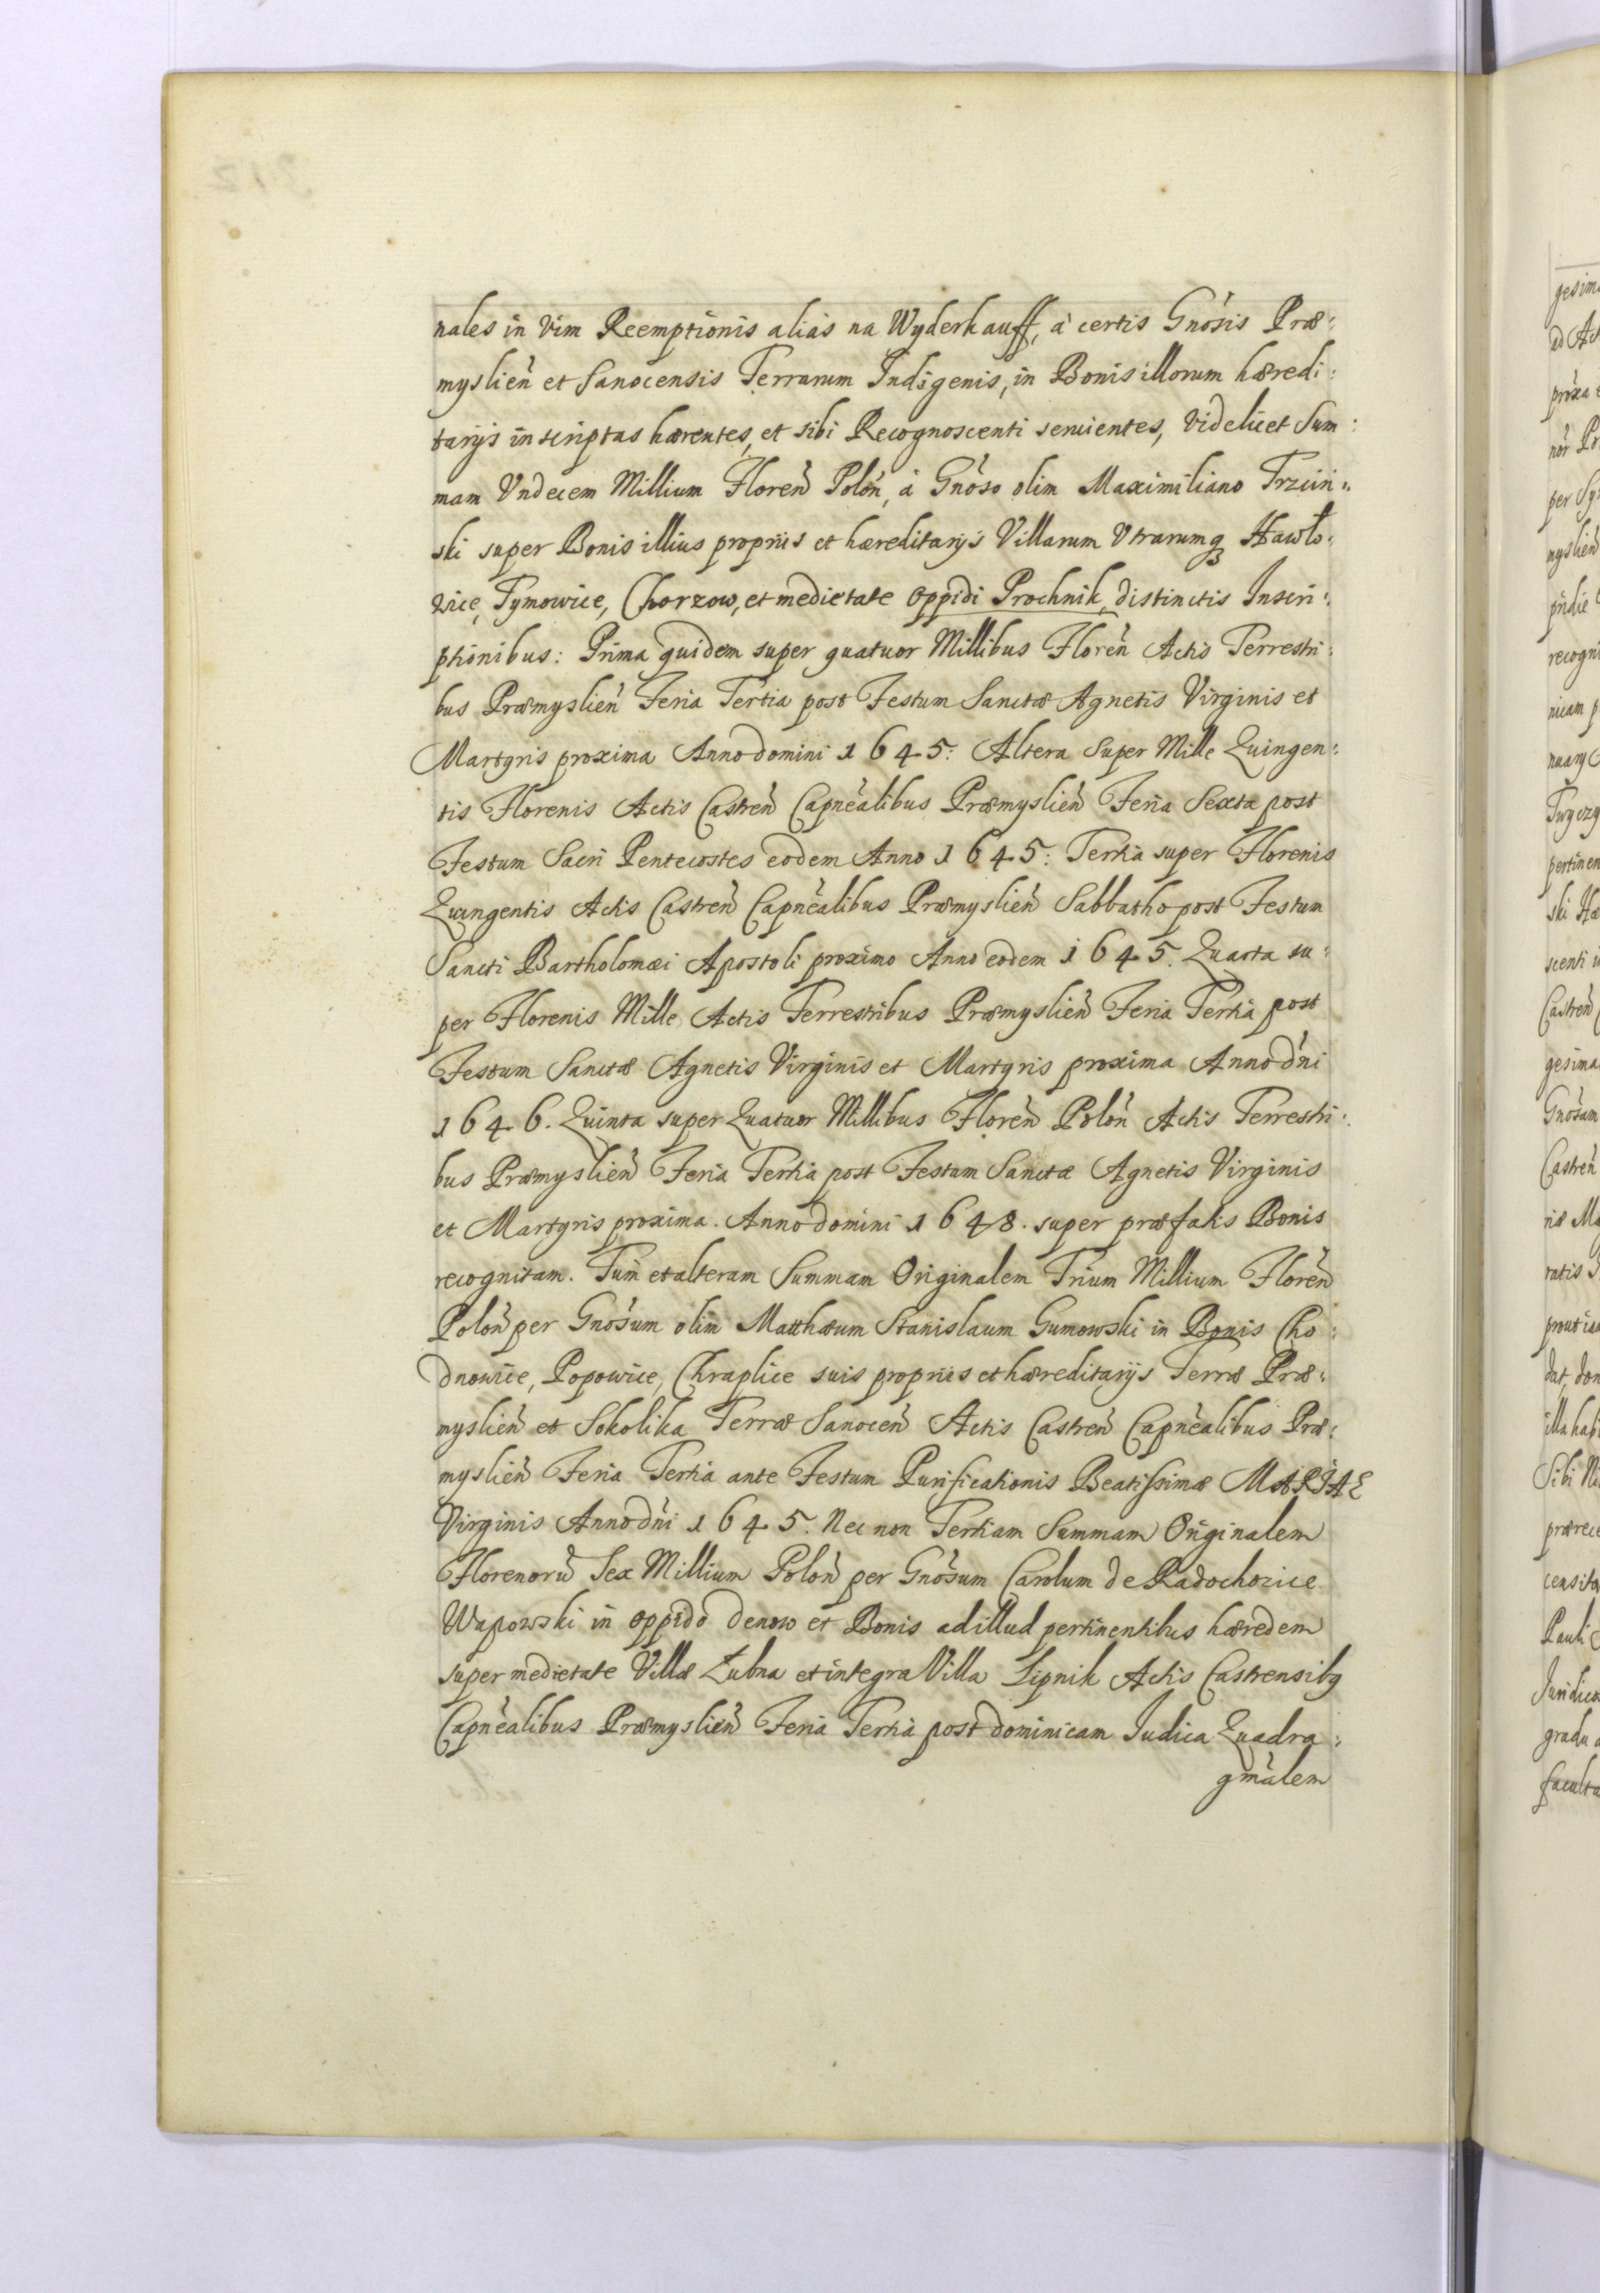 nales in vim Reemptionis alias na Wyderkauff, à certis Gnōsis Præ:
myslien̄ et Sanocensis Terrarum Indigenis, in Bonis illorum hæredi:
tarijs inscriptas hærentes, et sibi Recognoscenti seruientes, videlicet Sum:
mam Vndecem Millium Floren̄ Polon̄, à Gnōso olim Maximiliano Trzcin:
ski super Bonis illius proprijs et hæreditarijs Villarum Vtrarumq₃ Hawło:
wice, Tymowice, Chorzow, et medietate Oppidi Prochnik, distinctis Inscri:
ptionibus: Prima quidem super quatuor Millibus Floren̄ Actis Terrestri:
bus Præmyslien̄ Feria Tertia post Festum Sanctæ Agnetis Virginis et
Martyris proxima Anno domini 1645: Altera super Mille Quingen:
tis Florenis Actis Castren̄ Capnēalibus Præmyslien̄ Feria Sexta post
Festum Sacri Pentecostes eodem Anno 1645: Tertia super Florenis
Quingentis Actis Castren̄ Capnēalibus Præmyslien̄ Sabbatho post Festum
Sancti Bartholomæi Apostoli proximo Anno eodem 1645. Quarta su:
per Florenis Mille Actis Terrestribus Præmyslien̄ Feria Tertia post
Festum Sanctæ Agnetis Virginis et Martyris proxima Anno dn̄i
1646. Quinta super Quatuor Millibus Floren̄ Polon̄ Actis Terrestri:
bus Præmyslien̄ Feria Tertia post Festum Sanctæ Agnetis Virginis
et Martyris proxima. Anno domini 1648. super præfatis Bonis
recognitam. Tum et alteram Summam Originalem Trium Millium Floren̄
Polon̄ per Gnōsum olim Matthæum Stanislaum Gumowski in Bonis Cho:
dnowice, Popowice, Chraplice suis proprijs et hæreditarijs Terræ Præ:
myslien̄ et Sokolika Terræ Sanocen̄ Actis Castren̄ Capnēalibus Præ:
myslien̄ Feria Tertia ante Festum Purificationis Beatissimæ MARIAE
Virginis Anno dn̄i 1645. Nec non Tertiam Summam Originalem
Florenorū Sex Millium Polon̄ per Gnōsum Carolum de Radochonice
Wapowski in oppido Denow et Bonis ad illud pertinentibus hæredem
super medietate Villæ Łubna et integra Villa Lipnik Actis Castrensibq
Capnēalibus Præmyslien̄ Feria Tertia post dominicam Iudica Quadra:
gmālem